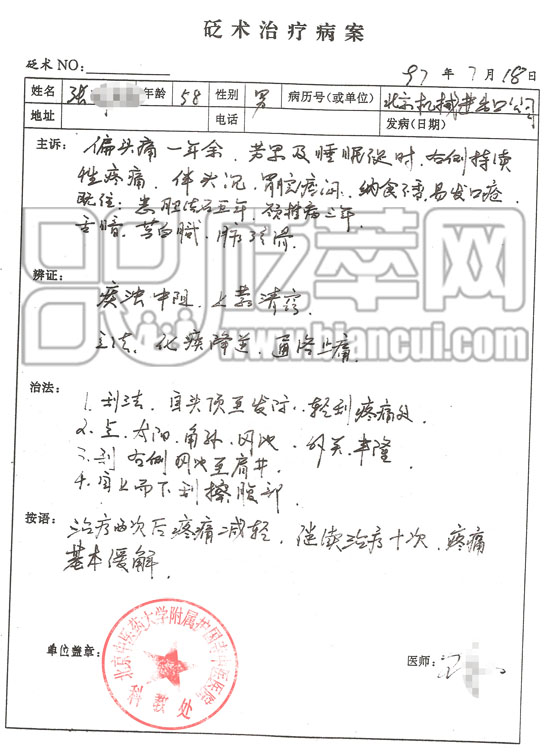 砭术治疗病案
砭术 NO:
97 年 7 月 18 日
姓名 张 年龄 58 性别 男 病历号(或单位) 北京机械进出口公司
地址 电话 发病(日期)
主诉: 偏头痛一年余，劳累及睡眠淀时，右侧持续
性疼痛，伴头沉，胃脘痞闷，纳食不香，易发口疮
既往: 患胆结石五年，颈椎病三年
舌暗，苔白腻，脉弦滑
辨证: 痰浊中阻，上蒙清窍
立法，化痰降逆，通络止痛
治法: 1. 刮法，自头顶至发际，轻刮疼痛处
2. 点，太阳，角孙，风池，外关，丰隆
3. 刮 右侧风池至肩井
4. 自上而下刮擦腹部
按语: 治疗四次后疼痛减轻，继续治疗十次，疼痛
基本缓解
单位盖章: 医师:
北京中医药大学附属护国寺中医医院
科教处
砭萃网
www.biancui.com